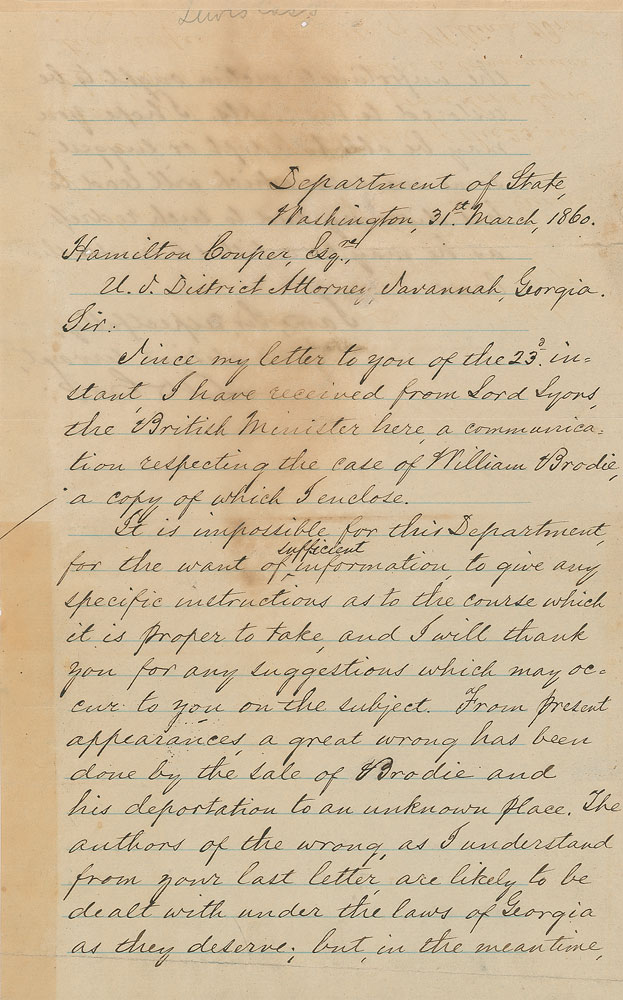 Lewis Cass
Department of State,
Washington, 31st March, 1860.
Hamilton Couper, Esqre,
U. S. District Attorney, Savannah, Georgia.
Sir:
Since my letter to you of the 23d in=
stant, I have received from Lord Lyons,
the British Minister here, a communica-
tion respecting the case of William Brodie,
a copy of which I enclose.
It is impossible for this Department,
for the want of sufficient information, to give any
specific instructions as to the course which
it is proper to take, and I will thank
you for any suggestions which may oc=
cur to you on the subject. From present
appearances, a great wrong has been
done by the sale of Brodie and
his deportation to an unknown place. The
authors of the wrong, as I understand
from your last letter, are likely to be
dealt with under the laws of Georgia
as they deserve; but, in the meantime,